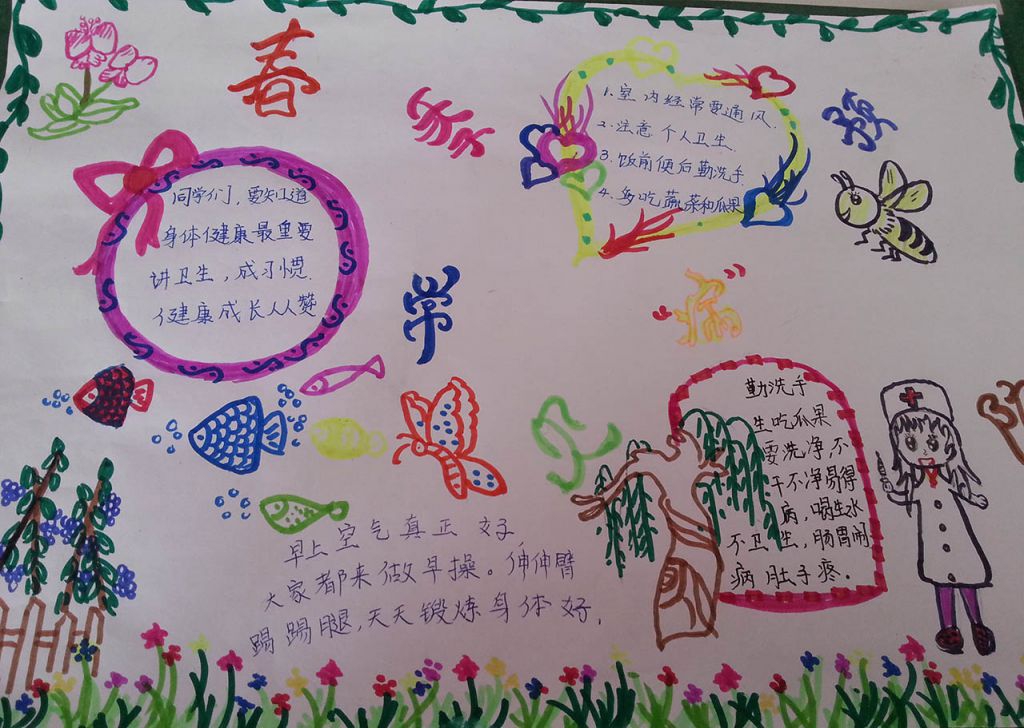 春
季
常
见
病
预
同学们，要知道
身体健康最重要
讲卫生，成习惯.
健康成长人人赞
1.室内经常要通风.
2.注意个人卫生.
3.饭前便后勤洗手
4.多吃蔬菜和瓜果
早上空气真正好，
大家都来做早操。伸伸臂
踢踢腿，天天锻炼身体好，
勤洗手
生吃瓜果
要洗净，不
干不净易得
病，喝生水
不卫生，肠胃闹
病肚子疼.